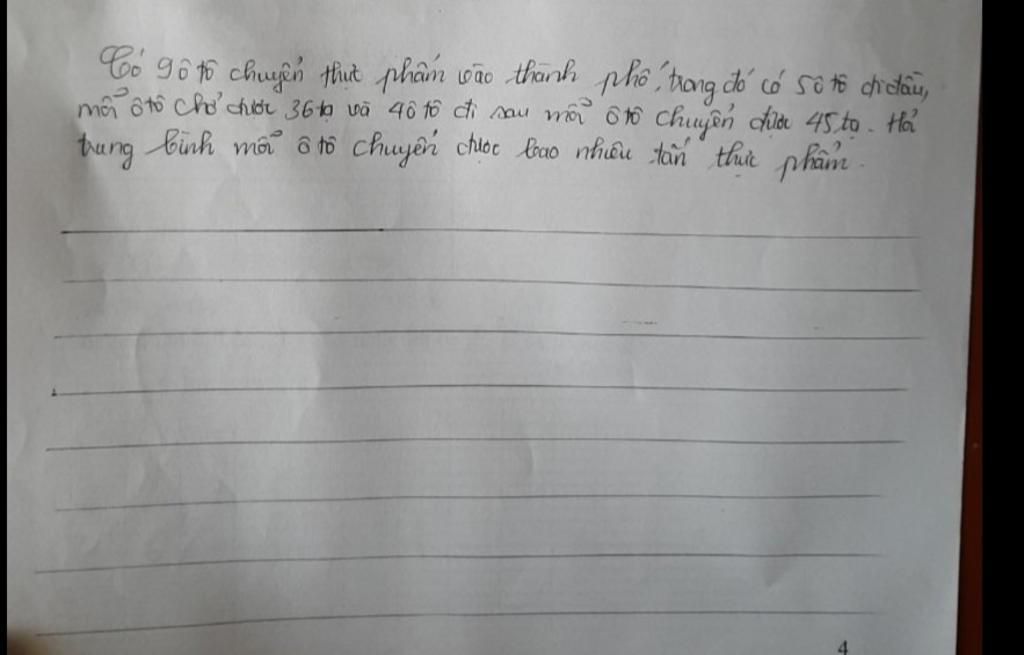 Có 9 ô tô chuyển thực phẩm vào thành phố, trong đó có 5 ô tô đi đầu,
mỗi ô tô chở được 36 tạ và 4 ô tô đi sau mỗi ô tô chuyển được 45 tạ. Hỏi
trung bình mỗi ô tô chuyển được bao nhiêu tấn thực phẩm.
4